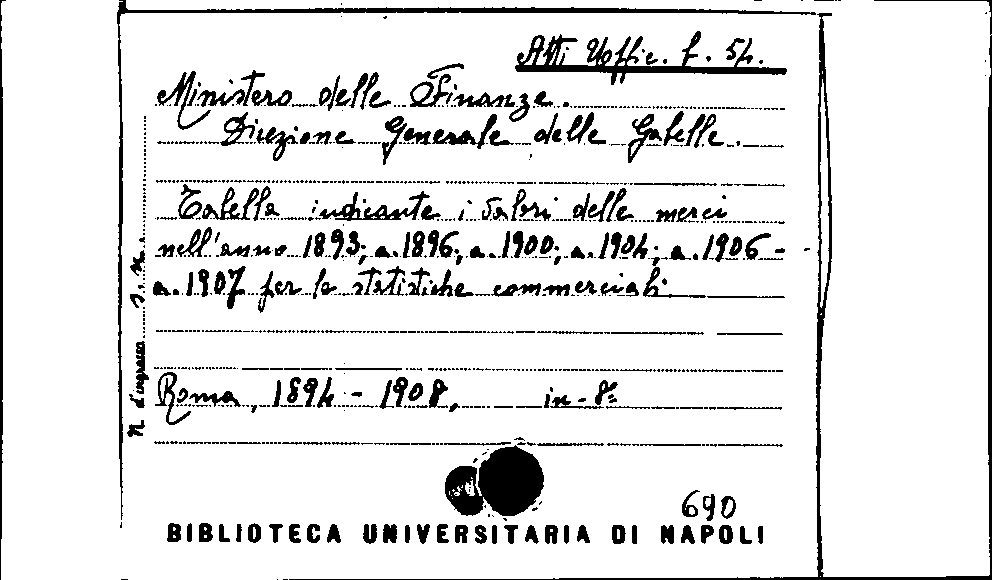 Atti Uffic. f. 54.
Ministero delle Finanze.
Direzione Generale delle Gabelle.
Tabella indicante i valori delle merci
nell'anno 1893; a. 1896; a. 1900; a. 1904; a. 1906 -
a. 1907 per le statistiche commerciali.
Roma, 1894 - 1908, in-8º
N. d'ingresso s.n.
690
BIBLIOTECA UNIVERSITARIA DI NAPOLI